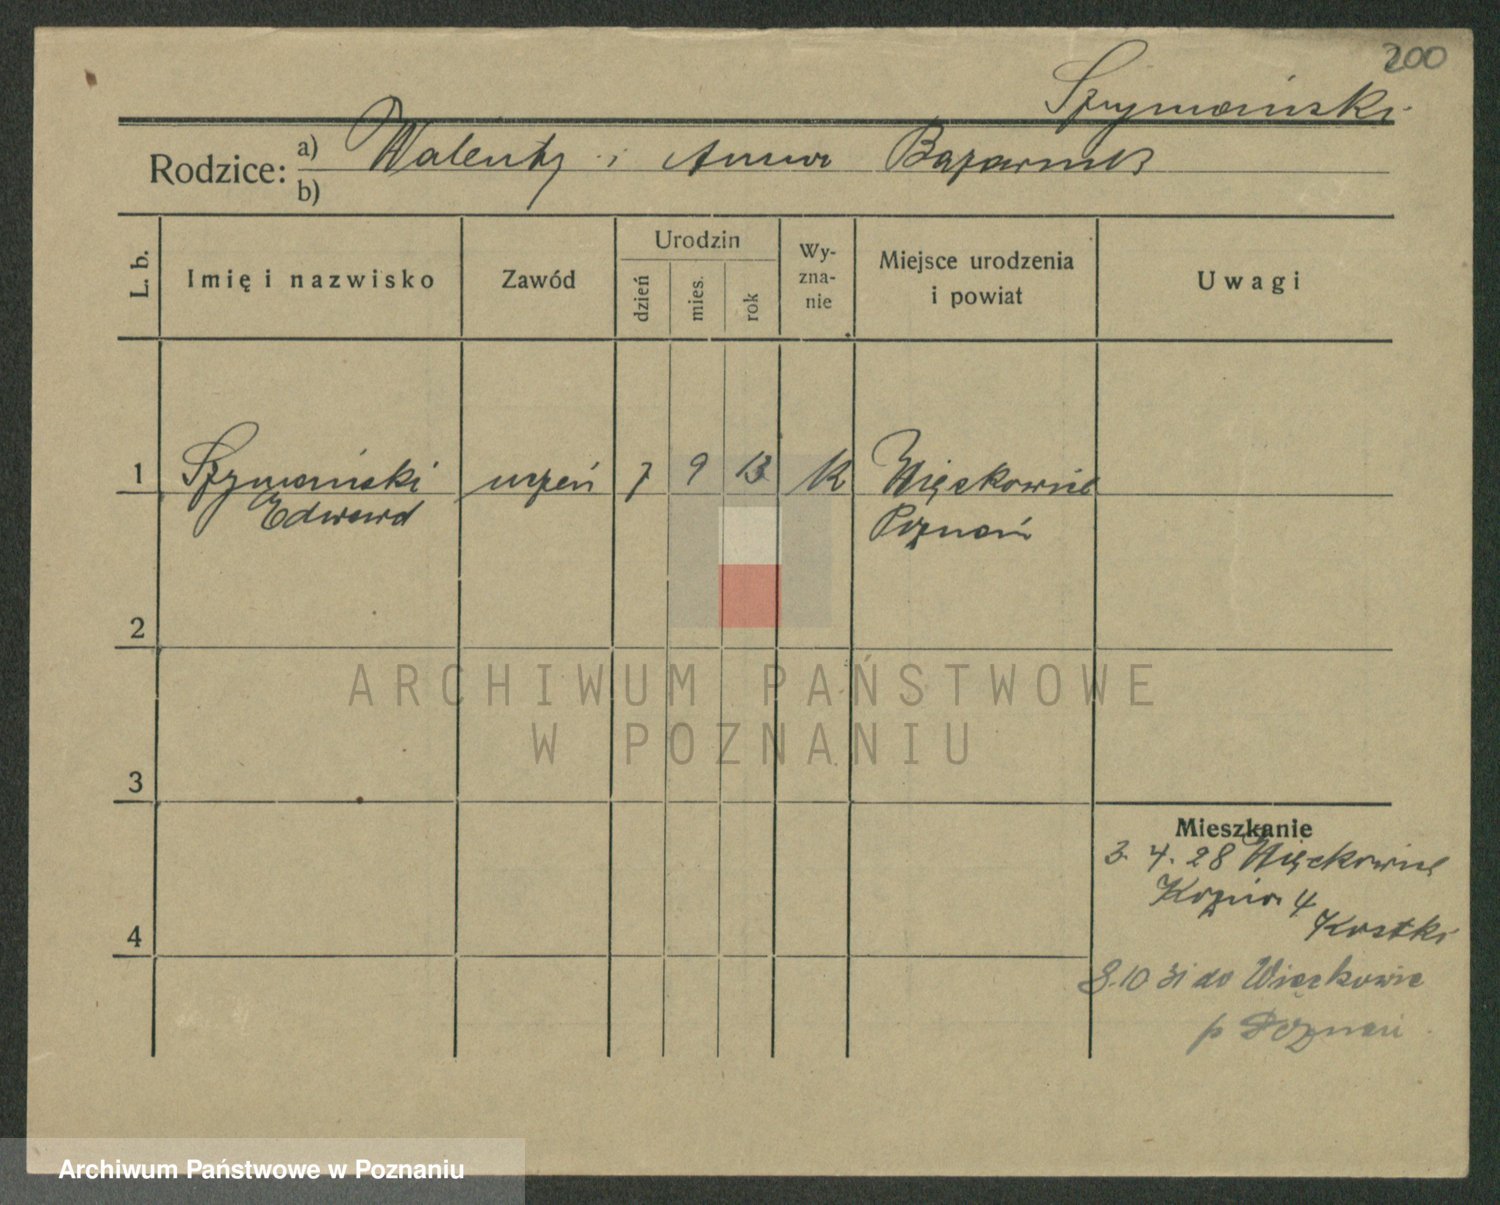 200
Szymański
Rodzice: a) Walenty i Anna Bazarnik
b)
L. b. Imię i nazwisko Zawód Urodzin dzień mies. rok Wy-zna-nie Miejsce urodzenia i powiat Uwagi
1 Szymański uczeń 7 9 13 k Więckowice
Edward Poznań
2
ARCHIWUM PAŃSTWOWE
W POZNANIU
3
Mieszkanie
3. 4. 28 Więckowice
4
Kostki
4
8.10 31 do Więckowic
p Poznań
Archiwum Państwowe w Poznaniu